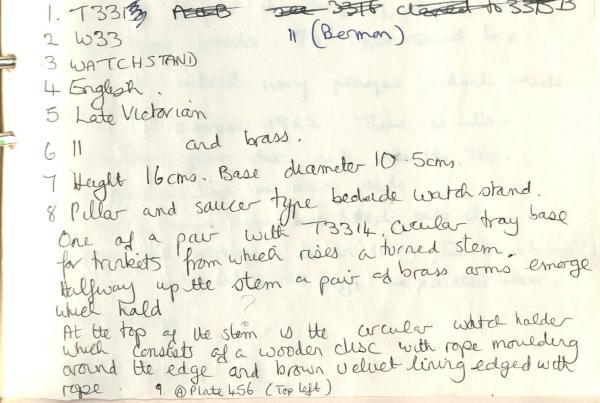 1. T3313 A & B see 3316 changed to 3315B
2 W33 11 (Berman)
3 WATCHSTAND
4 English.
5 Late Victorian
6 11 and brass.
7 Height 16cms. Base diameter 10.5cms
8 Pillar and saucer type bedside watch stand.
One of a pair with T3314. Circular tray base
for trinkets from which rises a turned stem.
Halfway up the stem a pair of brass arms emerge
which hold ?
At the top of the stem is the circular watch holder
which consists of a wooden disc with rope moulding
around the edge and brown velvet lining edged with
rope. 9. @ Plate 456 (Top left)